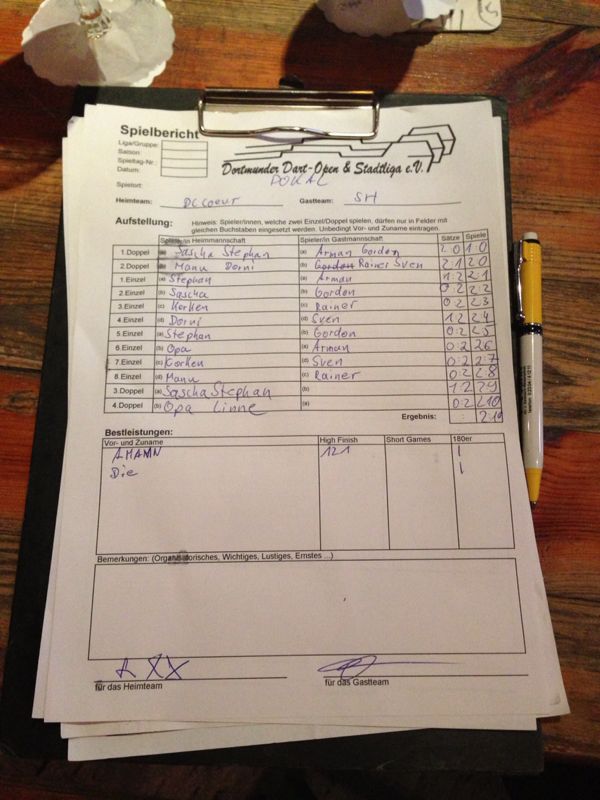 Spielbericht
Liga/Gruppe:
Saison:
Spieltag-Nr.:
Datum:
Dortmunder Dart-Open & Stadtliga e.V.
Spielort: POKAL
Heimteam: DC Coeur Gastteam: SH
Aufstellung: Hinweis: Spieler/innen, welche zwei Einzel/Doppel spielen, dürfen nur in Felder mit
gleichen Buchstaben eingesetzt werden. Unbedingt Vor- und Zuname eintragen.
Spieler/in Heimmannschaft Spieler/in Gastmannschaft Sätze Spiele
1.Doppel (a) Sascha Stephan (a) Arman Gordon 2:0 1:0
2.Doppel (b) Manu Dorni (b) Gordon Rainer Sven 2:1 2:0
1.Einzel (a) Stephan (a) Arman 1:2 2:1
2.Einzel (b) Sascha (b) Gordon 0:2 2:2
3.Einzel (c) Korken (c) Rainer 0:2 2:3
4.Einzel (d) Dorni (d) Sven 1:2 2:4
5.Einzel (a) Stephan (b) Gordon 0:2 2:5
6.Einzel (b) Opa (a) Arman 0:2 2:6
7.Einzel (c) Korken (d) Sven 0:2 2:7
8.Einzel (d) Manu (c) Rainer 0:2 2:8
3.Doppel (a) Sascha Stephan (b) 1:2 2:9
4.Doppel (b) Opa Linne (a) 0:2 2:10
Ergebnis: : 2:10
Bestleistungen:
Vor- und Zuname High Finish Short Games 180er
121 I
Die I
Bemerkungen: (Organisatorisches, Wichtiges, Lustiges, Ernstes ...)
XX
für das Heimteam für das Gastteam